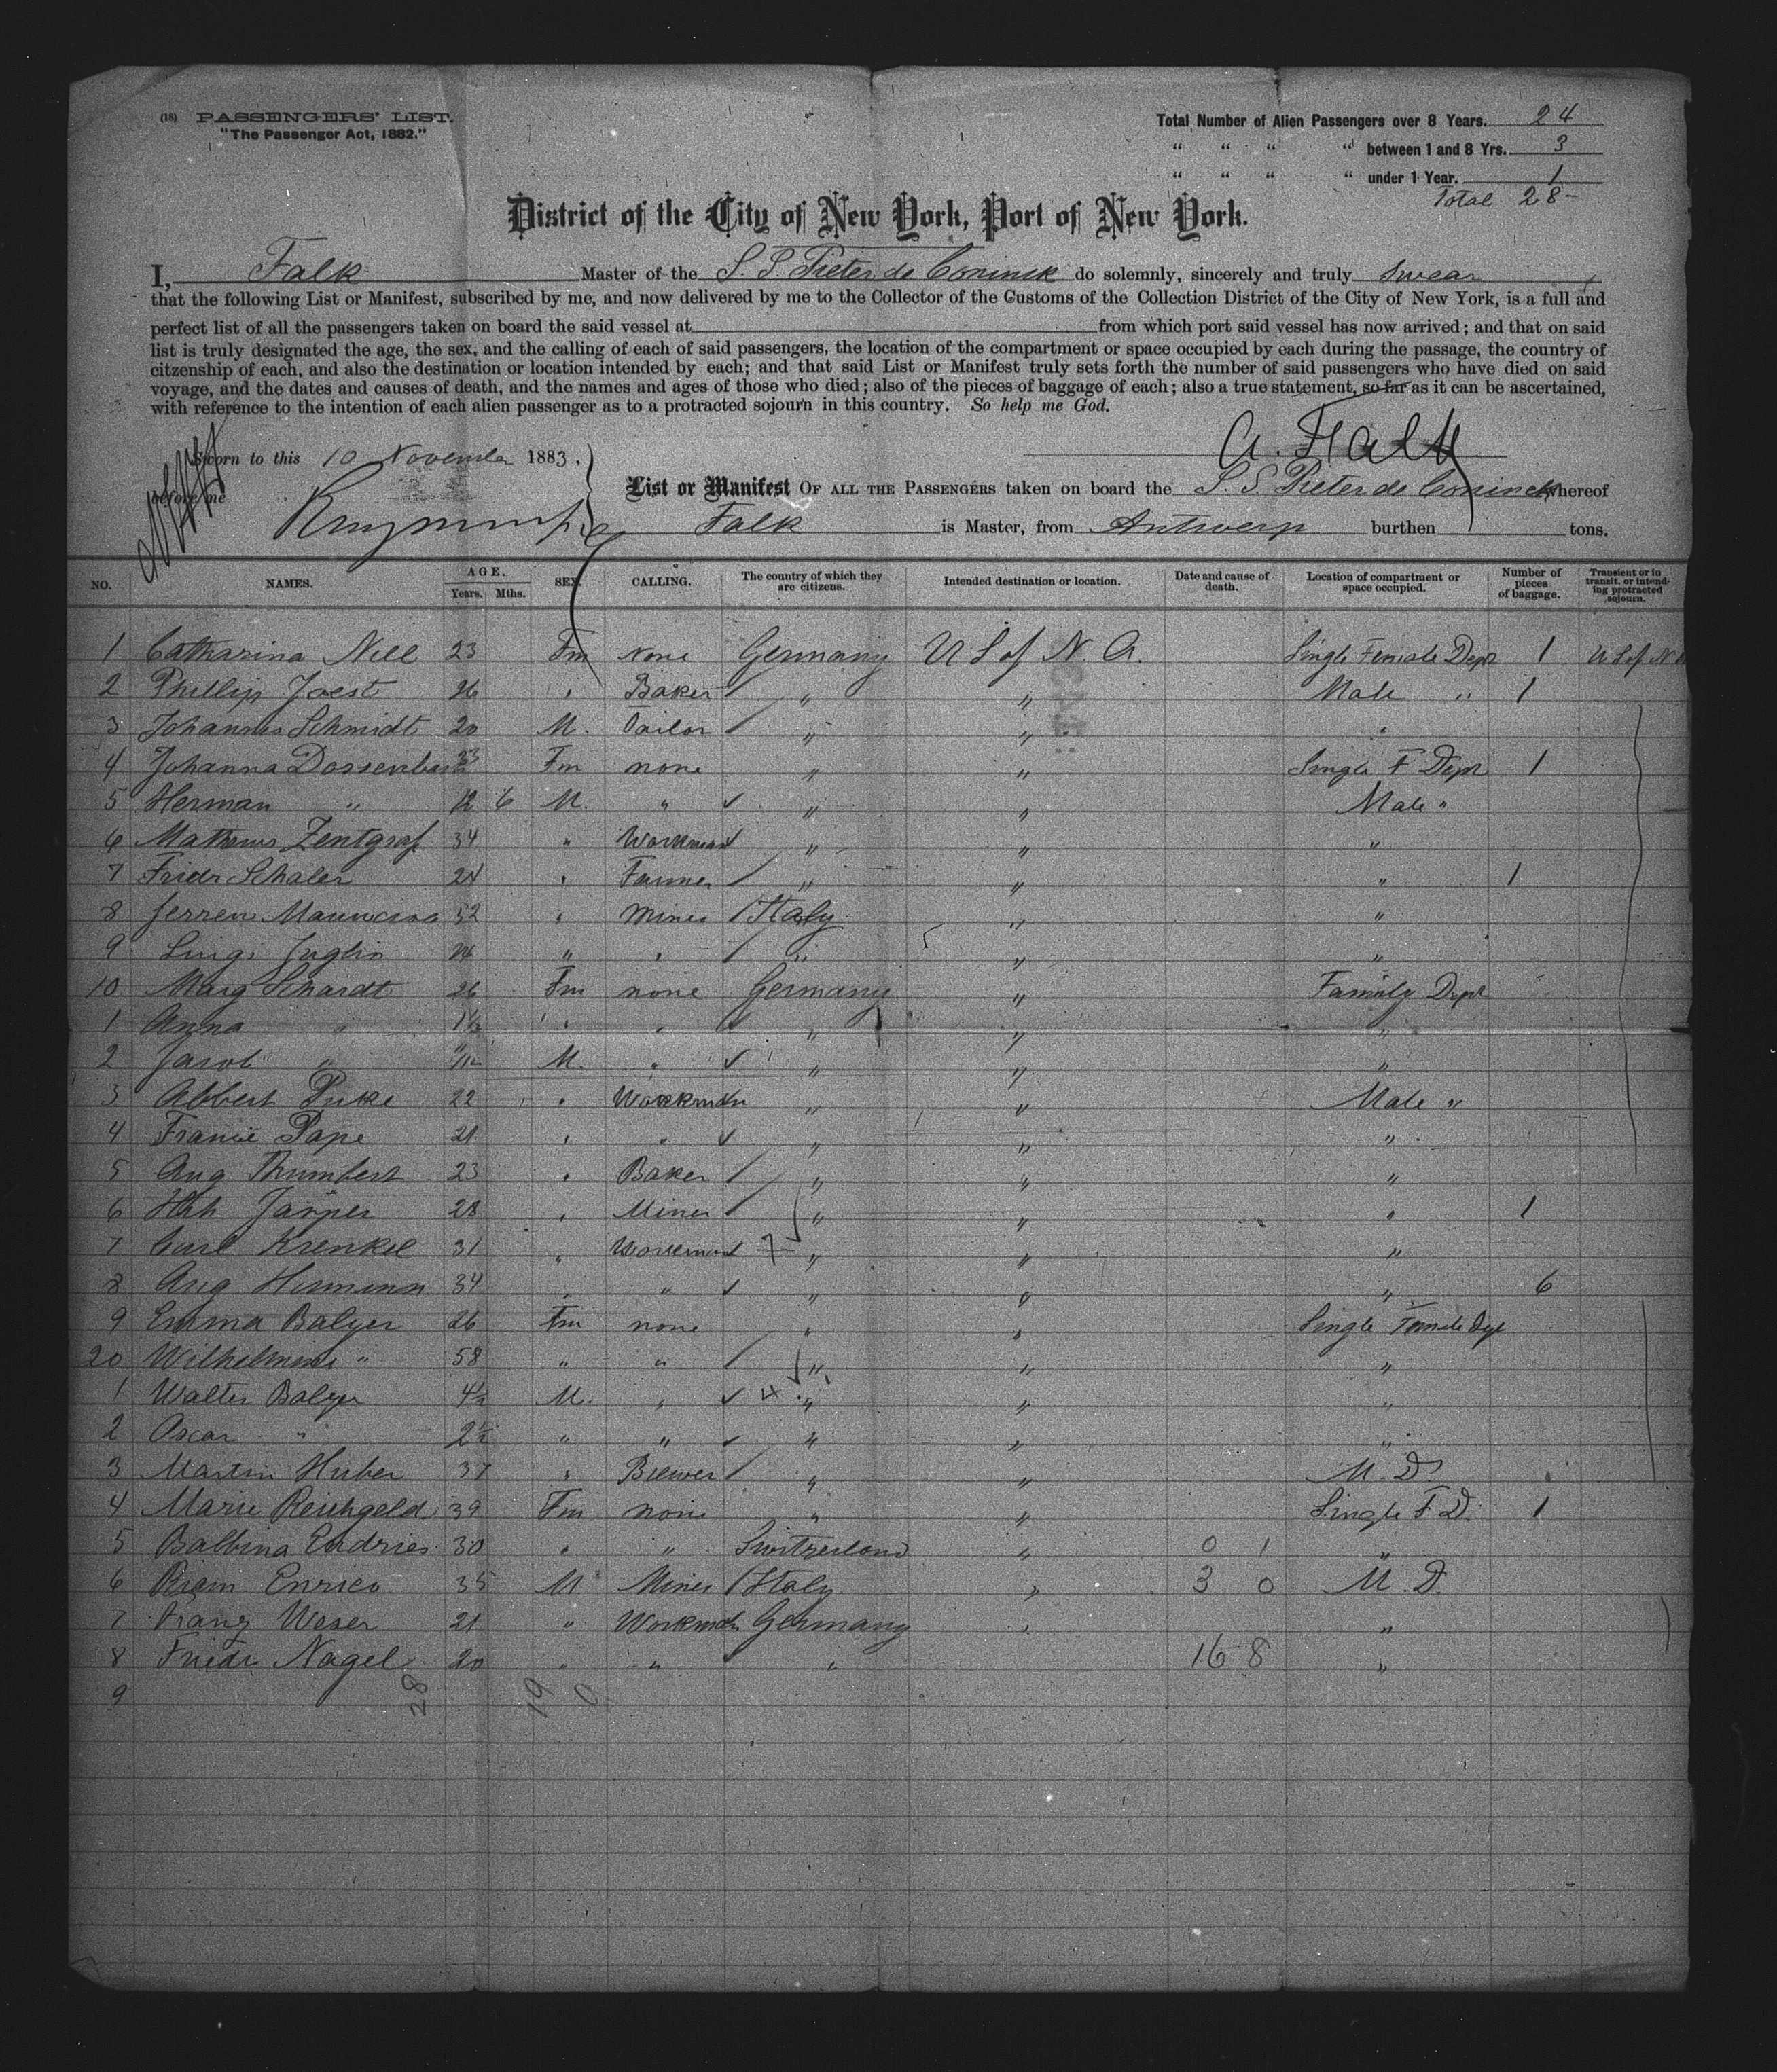 (18) PASSENGERS' LIST.
"The Passenger Act, 1882."
Total Number of Alien Passengers over 8 Years. 24
" " " " between 1 and 8 Yrs. 3
" " " " under 1 Year. 1
Total 28
District of the City of New York, Port of New York.
I, Falk Master of the S. S. Pieter de Coninck do solemnly, sincerely and truly swear
that the following List or Manifest, subscribed by me, and now delivered by me to the Collector of the Customs of the Collection District of the City of New York, is a full and
perfect list of all the passengers taken on board the said vessel at from which port said vessel has now arrived; and that on said
list is truly designated the age, the sex, and the calling of each of said passengers, the location of the compartment or space occupied by each during the passage, the country of
citzenship of each, and also the destination or location intended by each; and that said List or Manifest truly sets forth the number of said passengers who have died on said
voyage, and the dates and causes of death, and the names and ages of those who died; also of the pieces of baggage of each; also a true statement, so far as it can be ascertained,
with reference to the intention of each alien passenger as to a protracted sojourn in this country. So help me God.
Sworn to this 10 November 1883.
A. Falk
before me
List or Manifest OF ALL THE PASSENGERS taken on board the S. S. Pieter de Coninck whereof
Falk is Master, from Antwerp burthen tons.
NO. NAMES. AGE. Years. Mths. SEX. CALLING. The country of which they are citizens. Intended destination or location. Date and cause of death. Location of compartment or space occupied. Number of pieces of baggage. Transient or in transit, or intending protracted sojourn.
1 Catharina Nill 23 Fm None Germany U S of N. A. Single Female Dept 1 U S of N
2 Phillip Joest 26 " Baker " " Male " 1
3 Johannes Schmidt 20 M. Tailor " " "
4 Johanna Dossenbach Fm none " " Single F Dept 1
5 Herman " 12 6 M. " " " Male "
6 Zentgraf 34 " Workman " " "
7 Friedr Schaler 24 " Farmer " " " 1
8 52 " Miner Italy " "
9 " " " " "
10 Marg Schardt 26 Fm none Germany " Family Dept
1 Anna " 1½ " " " " "
2 Jacob " 11/12 M. " " " "
3 Albert 22 " Workman " " Male "
4 Pape 21 " " " " "
5 Aug 23 " Baker " " "
6 28 " Miner " " " 1
7 Carl Krenkel 31 " Workman 7 " " "
8 Aug 34 " " " " " 6
9 Emma Balzer 26 Fm none " " Single Female Dept
20 " 58 " " " " "
1 Walter Balzer 4½ M. " 4 " " "
2 Oscar " 2½ " " " " "
3 Martin Huber 37 " Brewer " " M. D
4 Marie Reichgeld 39 Fm none " " Single F D. 1
5 Balbina Endries 30 " " Switzerland " 0 1 "
6 Enrico 35 M Miner Italy " 3 0 M. D.
7 Franz Weser 21 " Workman Germany " "
8 Friedr Nagel 20 " " " 16 8 "
9 28 19 0